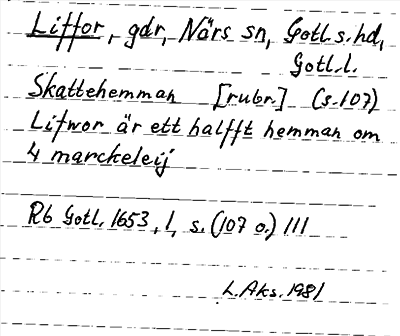 Liffor, gdr, Närs sn, Gotl. s. hd,
Gotl. l.
Skattehemman [rubr.] (s. 107)
Lifwor är ett halfft hemman om
4 marckeleij
Rb Gotl. 1653, l, s. (107 o.) 111
L. Aks. 1981